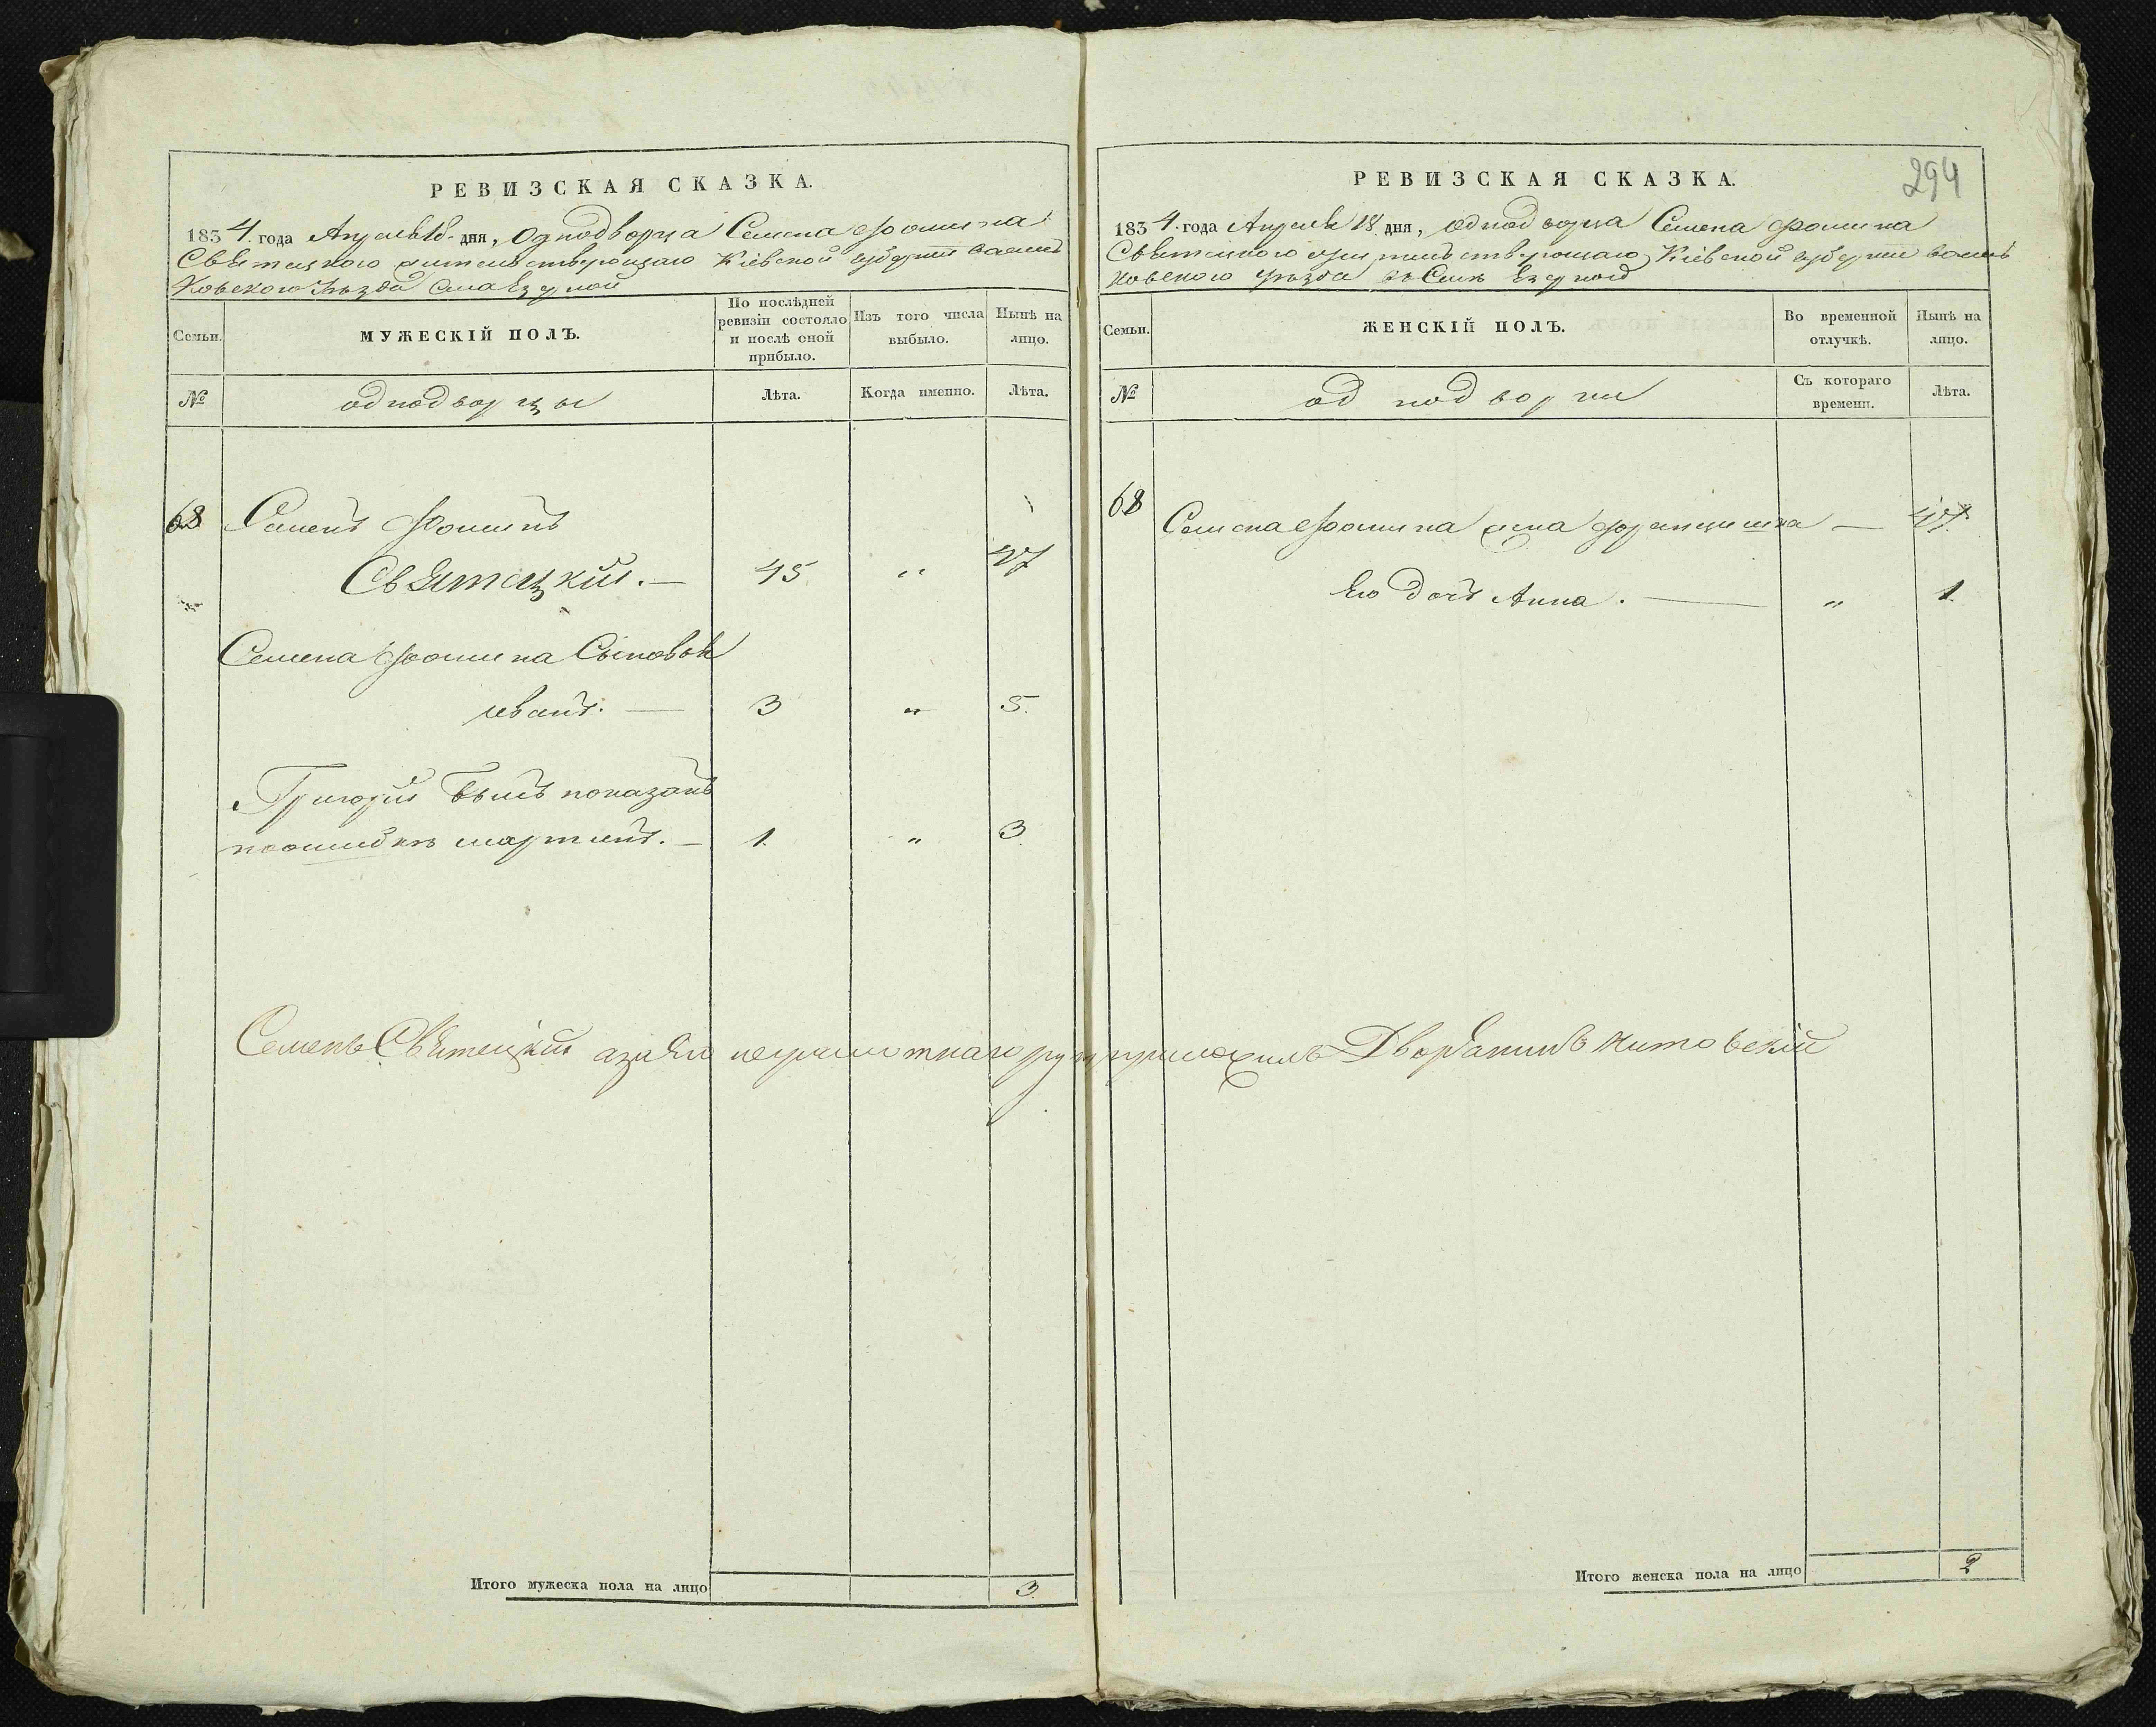 РЕВИЗСКАЯ СКАЗКА.
1834. года Апреля 18. дня, Однодворца Семена Фомина
Святецкого жительствующаго Кіевской губерніи Василь
ковского уезда села
Семьи.
МУЖЕСКІЙ ПОЛЪ.
По послѣдней ревизіи состояло и послѣ оной прибыло.
Изъ того числа выбыло.
Нынѣ на лицо.
№
однодворцы
Лѣта.
Когда именно.
Лѣта.
68 Семенъ Фоминъ
Святецкий. — 45 „ 47
Семена Фомина Сыновья
иванъ. — 3 „ 5.
Григорий былъ показанъ
поошибкѣ мартинъ. — 1. „ 3.
Семенъ Святецкий азанего неграмотнаго руку приложилъ Дворянинъ Китовский
Итого мужеска пола на лицо 3.
РЕВИЗСКАЯ СКАЗКА.
294
1834. года Апреля 18. дня, однодворца Семена Фомина
Святецкого жительствующаго Кіевской губерніи василь
ковского уезда въ Селе
Семьи.
ЖЕНСКІЙ ПОЛЪ.
Во временной отлучкѣ.
Нынѣ на лицо.
№
однодворки
Съ котораго времени.
Лѣта.
68 Семена Фомина жена Францишка — 47.
Его дочь Анна. — „ 1.
Итого женска пола на лицо 2